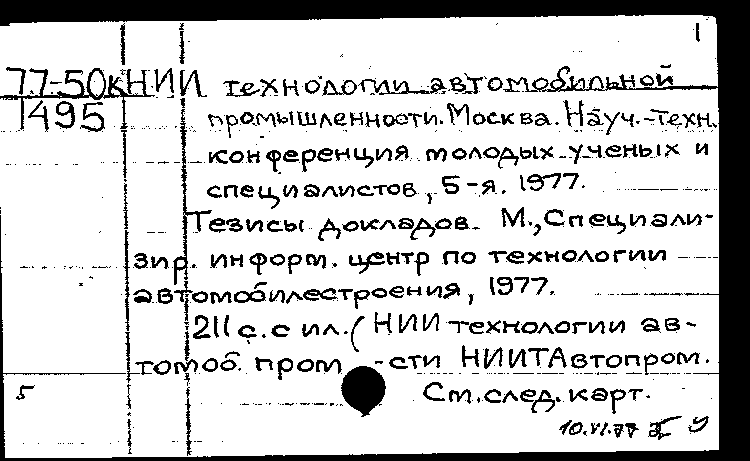 1
77-50к НИИ технологии автомобильной
1495 промышленности. Москва. Науч.-техн.
конференция молодых ученых и
специалистов, 5-я. 1977.
Тезисы докладов. М., Специали-
зир. информ. центр по технологии
автомобилестроения, 1977.
211 с. с ил. (НИИ технологии ав-
томоб. пром-сти НИИТАвтопром.
5 См. след. карт.
10.VI.77